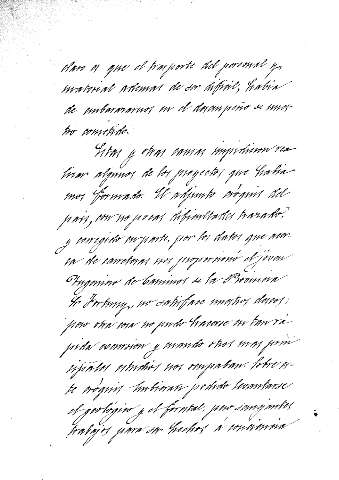 claro es que el trasporte del personal y
material ademas de ser dificil, habia
de embarazarnos en el desempeño de nues-
tro cometido.
Estas y otras causas impidieron rea-
lizar algunos de los proyectos que habia-
mos formado. El adjunto cróquis del
pais, con no pocas dificultades trazado
y corregido en parte, por los datos que acer-
ca de carreteras nos proporcionó el joven
Ingeniero de Caminos de la Provincia
Sr no satisface nuestros deseos;
pero otra cosa no pudo hacerse en tan rá-
pida escursion y cuando otros mas prin-
cipales estudios nos ocupaban. Sobre es-
te cróquis hubieran podido levantarse
el geológico y el forestal, pero semejantes
trabajos para ser hechos á conciencia